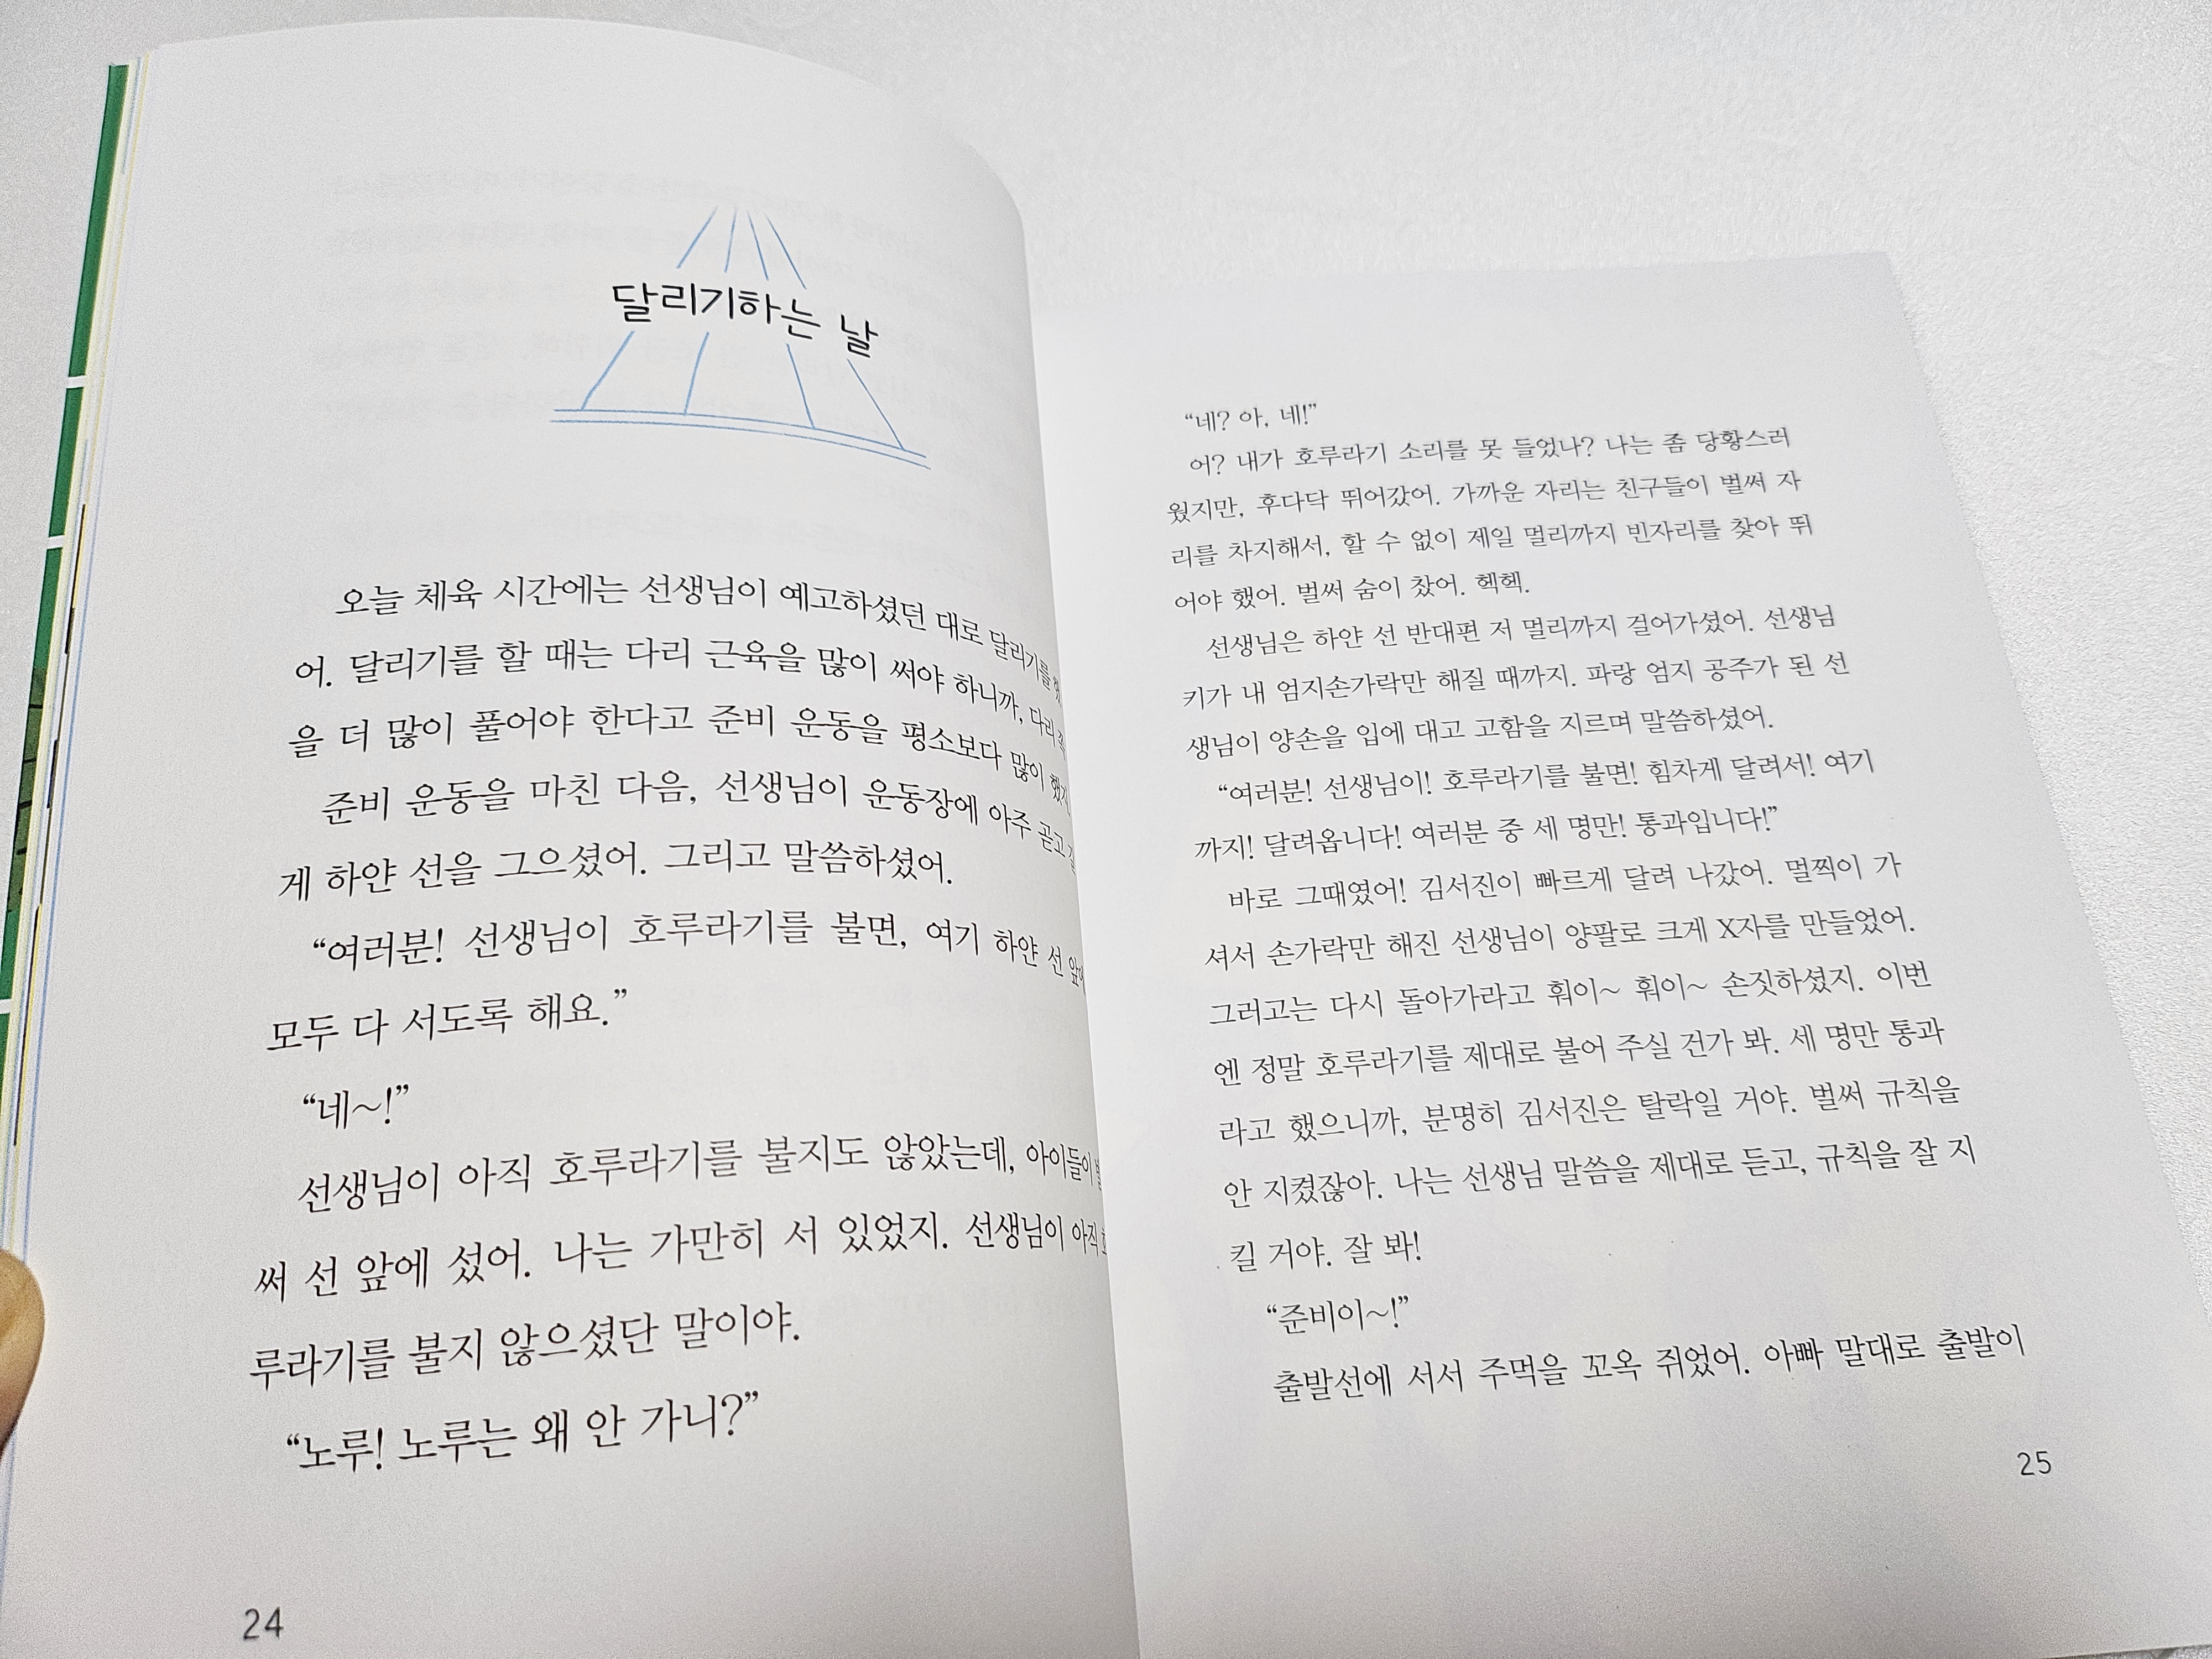 달리기하는 날
오늘 체육 시간에는 선생님이 예고하셨던 대로 달리기를
어. 달리기를 할 때는 다리 근육을 많이 써야 하니까, 다리
을 더 많이 풀어야 한다고 준비 운동을 평소보다 많이 했지.
준비 운동을 마친 다음, 선생님이 운동장에 아주 곧고
게 하얀 선을 그으셨어. 그리고 말씀하셨어.
“여러분! 선생님이 호루라기를 불면, 여기 하얀 선 앞에
모두 다 서도록 해요.”
“네~!”
선생님이 아직 호루라기를 불지도 않았는데, 아이들이
써 선 앞에 섰어. 나는 가만히 서 있었지. 선생님이 아직
루라기를 불지 않으셨단 말이야.
“노루! 노루는 왜 안 가니?”
24
“네? 아, 네!”
어? 내가 호루라기 소리를 못 들었나? 나는 좀 당황스러
웠지만, 후다닥 뛰어갔어. 가까운 자리는 친구들이 벌써 자
리를 차지해서, 할 수 없이 제일 멀리까지 빈자리를 찾아 뛰
어야 했어. 벌써 숨이 찼어. 헥헥.
선생님은 하얀 선 반대편 저 멀리까지 걸어가셨어. 선생님
키가 내 엄지손가락만 해질 때까지. 파랑 엄지 공주가 된 선
생님이 양손을 입에 대고 고함을 지르며 말씀하셨어.
“여러분! 선생님이! 호루라기를 불면! 힘차게 달려서! 여기
까지! 달려옵니다! 여러분 중 세 명만! 통과입니다!”
바로 그때였어! 김서진이 빠르게 달려 나갔어. 멀찍이 가
셔서 손가락만 해진 선생님이 양팔로 크게 X자를 만들었어.
그러고는 다시 돌아가라고 훠이~ 훠이~ 손짓하셨지. 이번
엔 정말 호루라기를 제대로 불어 주실 건가 봐. 세 명만 통과
라고 했으니까, 분명히 김서진은 탈락일 거야. 벌써 규칙을
안 지켰잖아. 나는 선생님 말씀을 제대로 듣고, 규칙을 잘 지
킬 거야. 잘 봐!
“준비이~!”
출발선에 서서 주먹을 꼬옥 쥐었어. 아빠 말대로 출발이
25